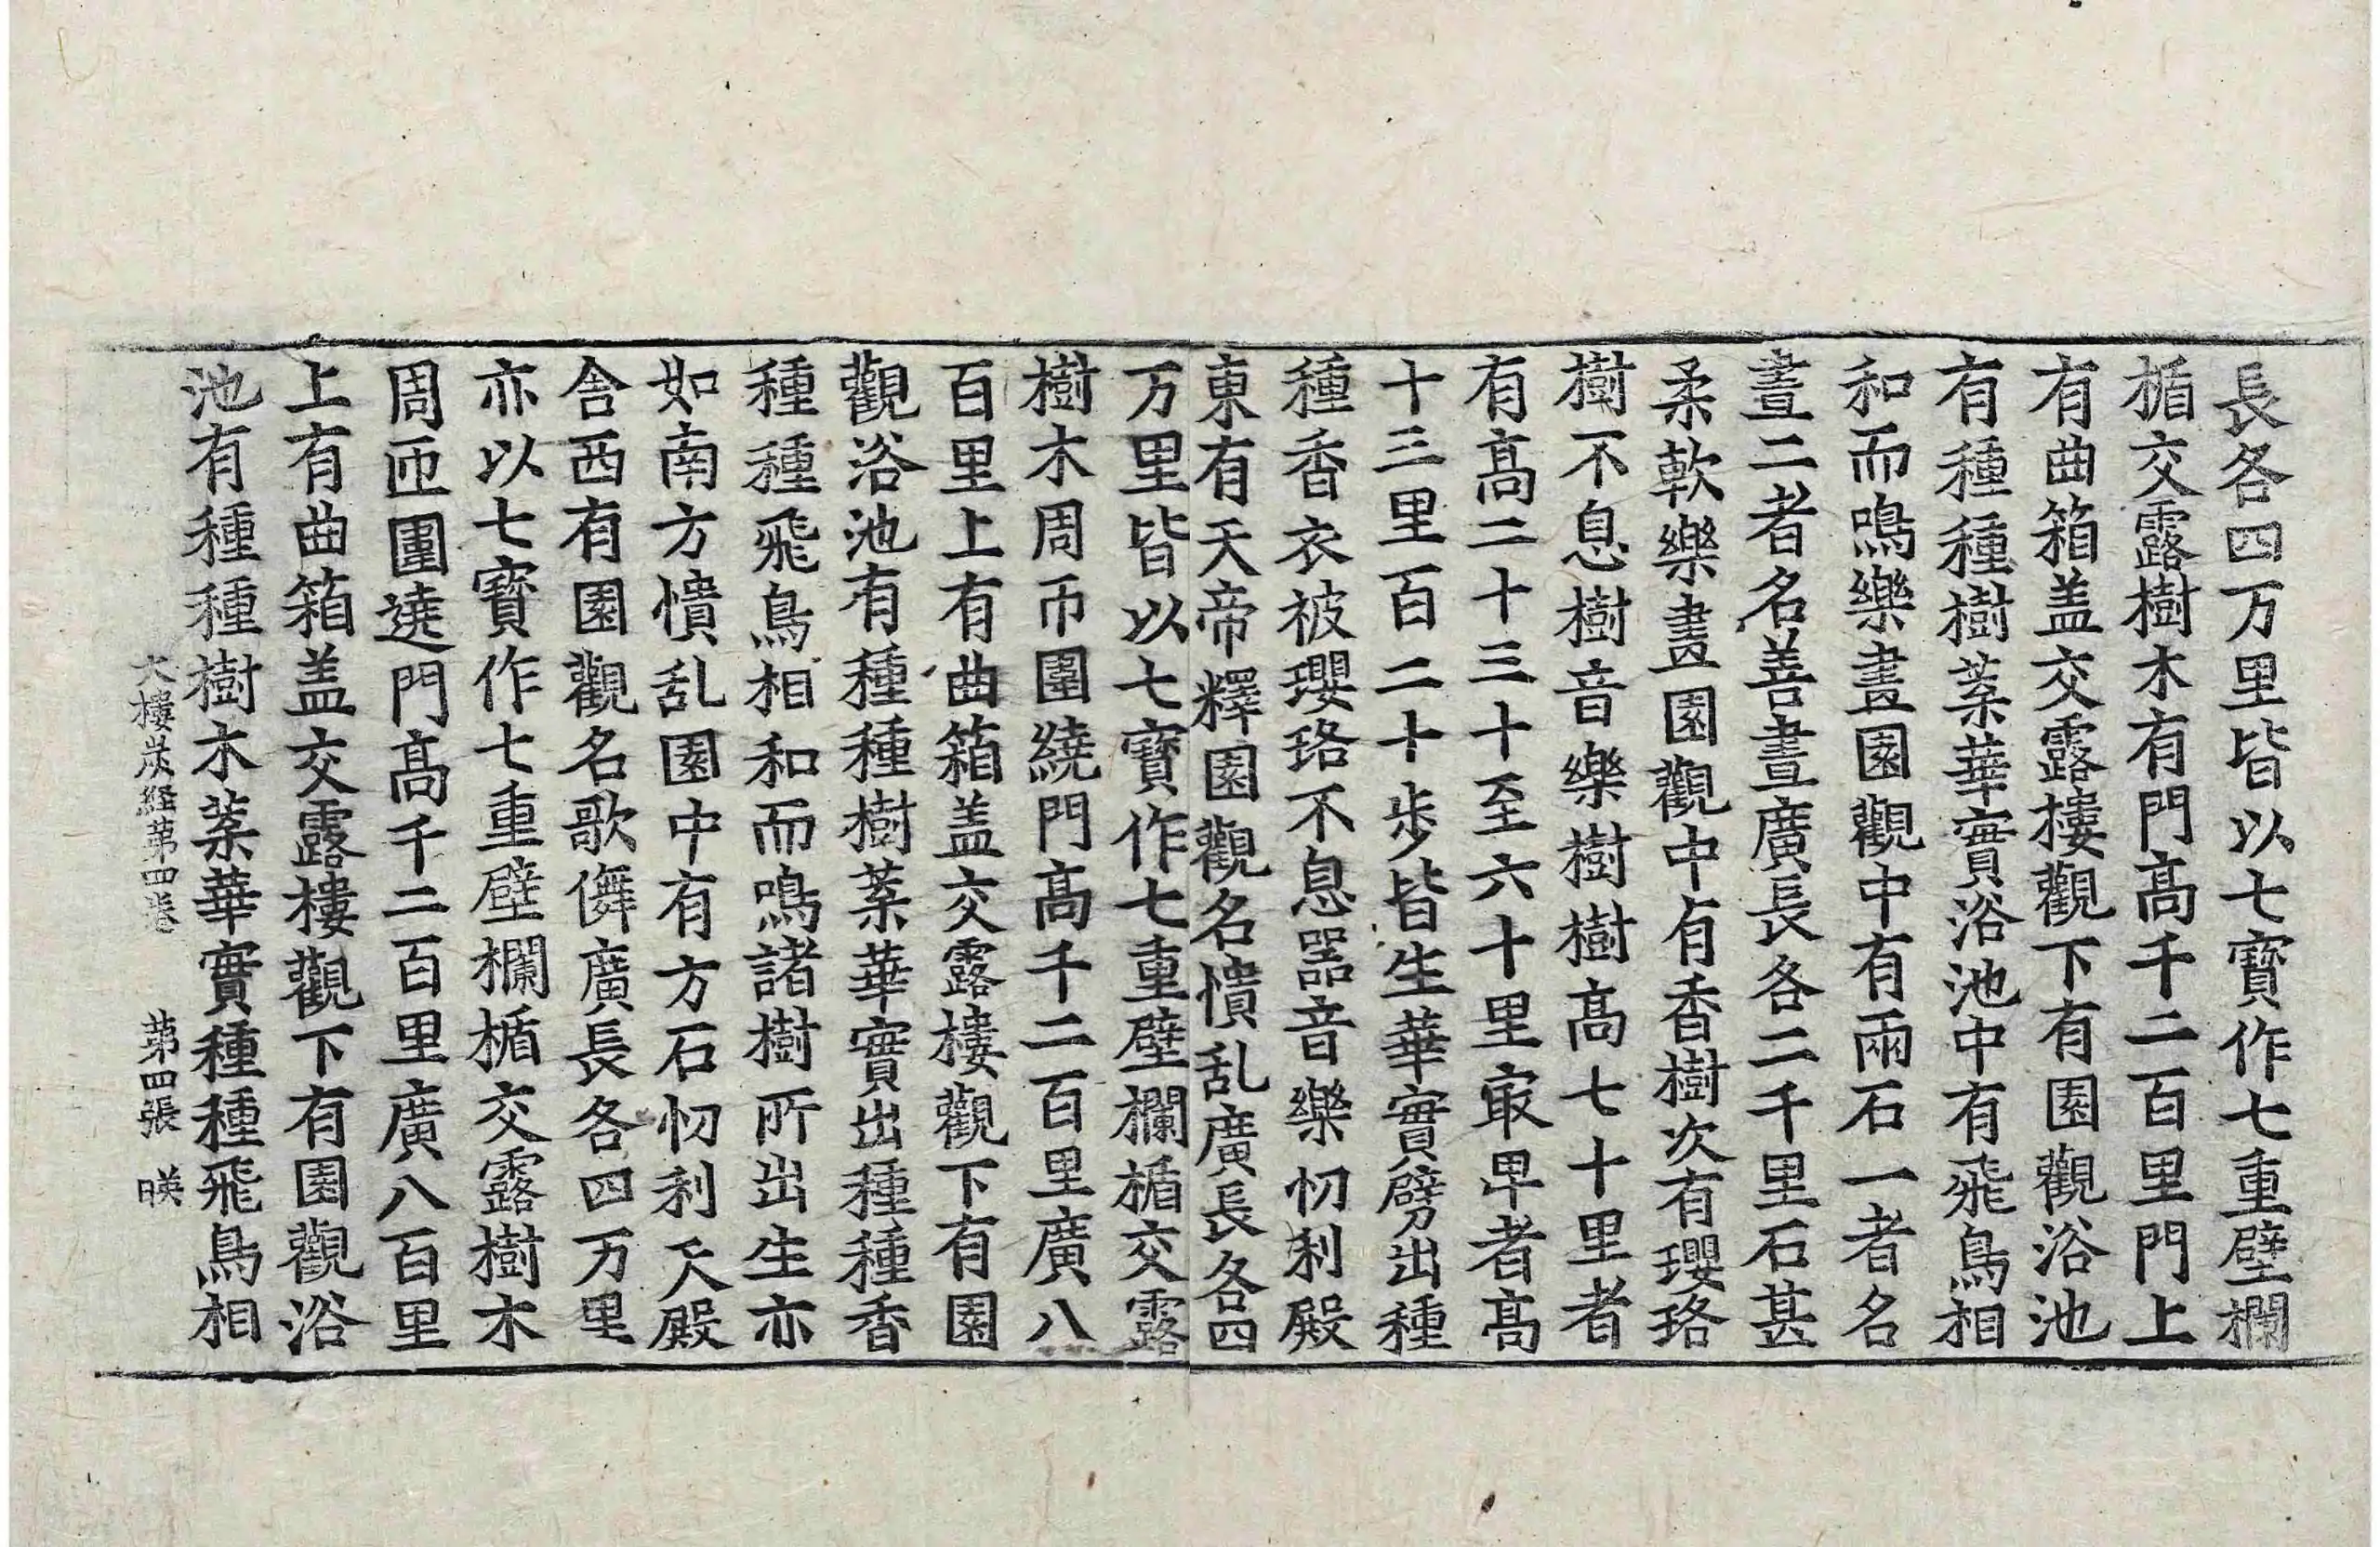 長各四万里皆以七寶作七重壁欄
楯交露樹木有門高千二百里門上
有曲箱盖交露樓觀下有園觀浴池
有種種樹葉華實浴池中有飛鳥相
和而鳴樂畫園觀中有兩石一者名
晝二者名善晝廣長各二千里石甚
柔軟樂畫園觀中有香樹次有瓔珞
樹不息樹音樂樹樹高七十里者
有高二十三十至六十里㝡卑者高
十三里百二十步皆生華實劈出種
種香衣被瓔珞不息器音樂忉利殿
東有天帝釋園觀名憒乱廣長各四
万里皆以七寶作七重壁欄楯交露
樹木周帀圍繞門高千二百里廣八
百里上有曲箱盖交露樓觀下有園
觀浴池有種種樹葉華實出種種香
種種飛鳥相和而鳴諸樹所出生亦
如南方憒乱園中有方石忉利天殿
舍西有園觀名歌儛廣長各四万里
亦以七寶作七重壁欄楯交露樹木
周匝圍遶門高千二百里廣八百里
上有曲箱盖交露樓觀下有園觀浴
池有種種樹木葉華實種種飛鳥相
大樓炭経苐四卷 苐四張 暎